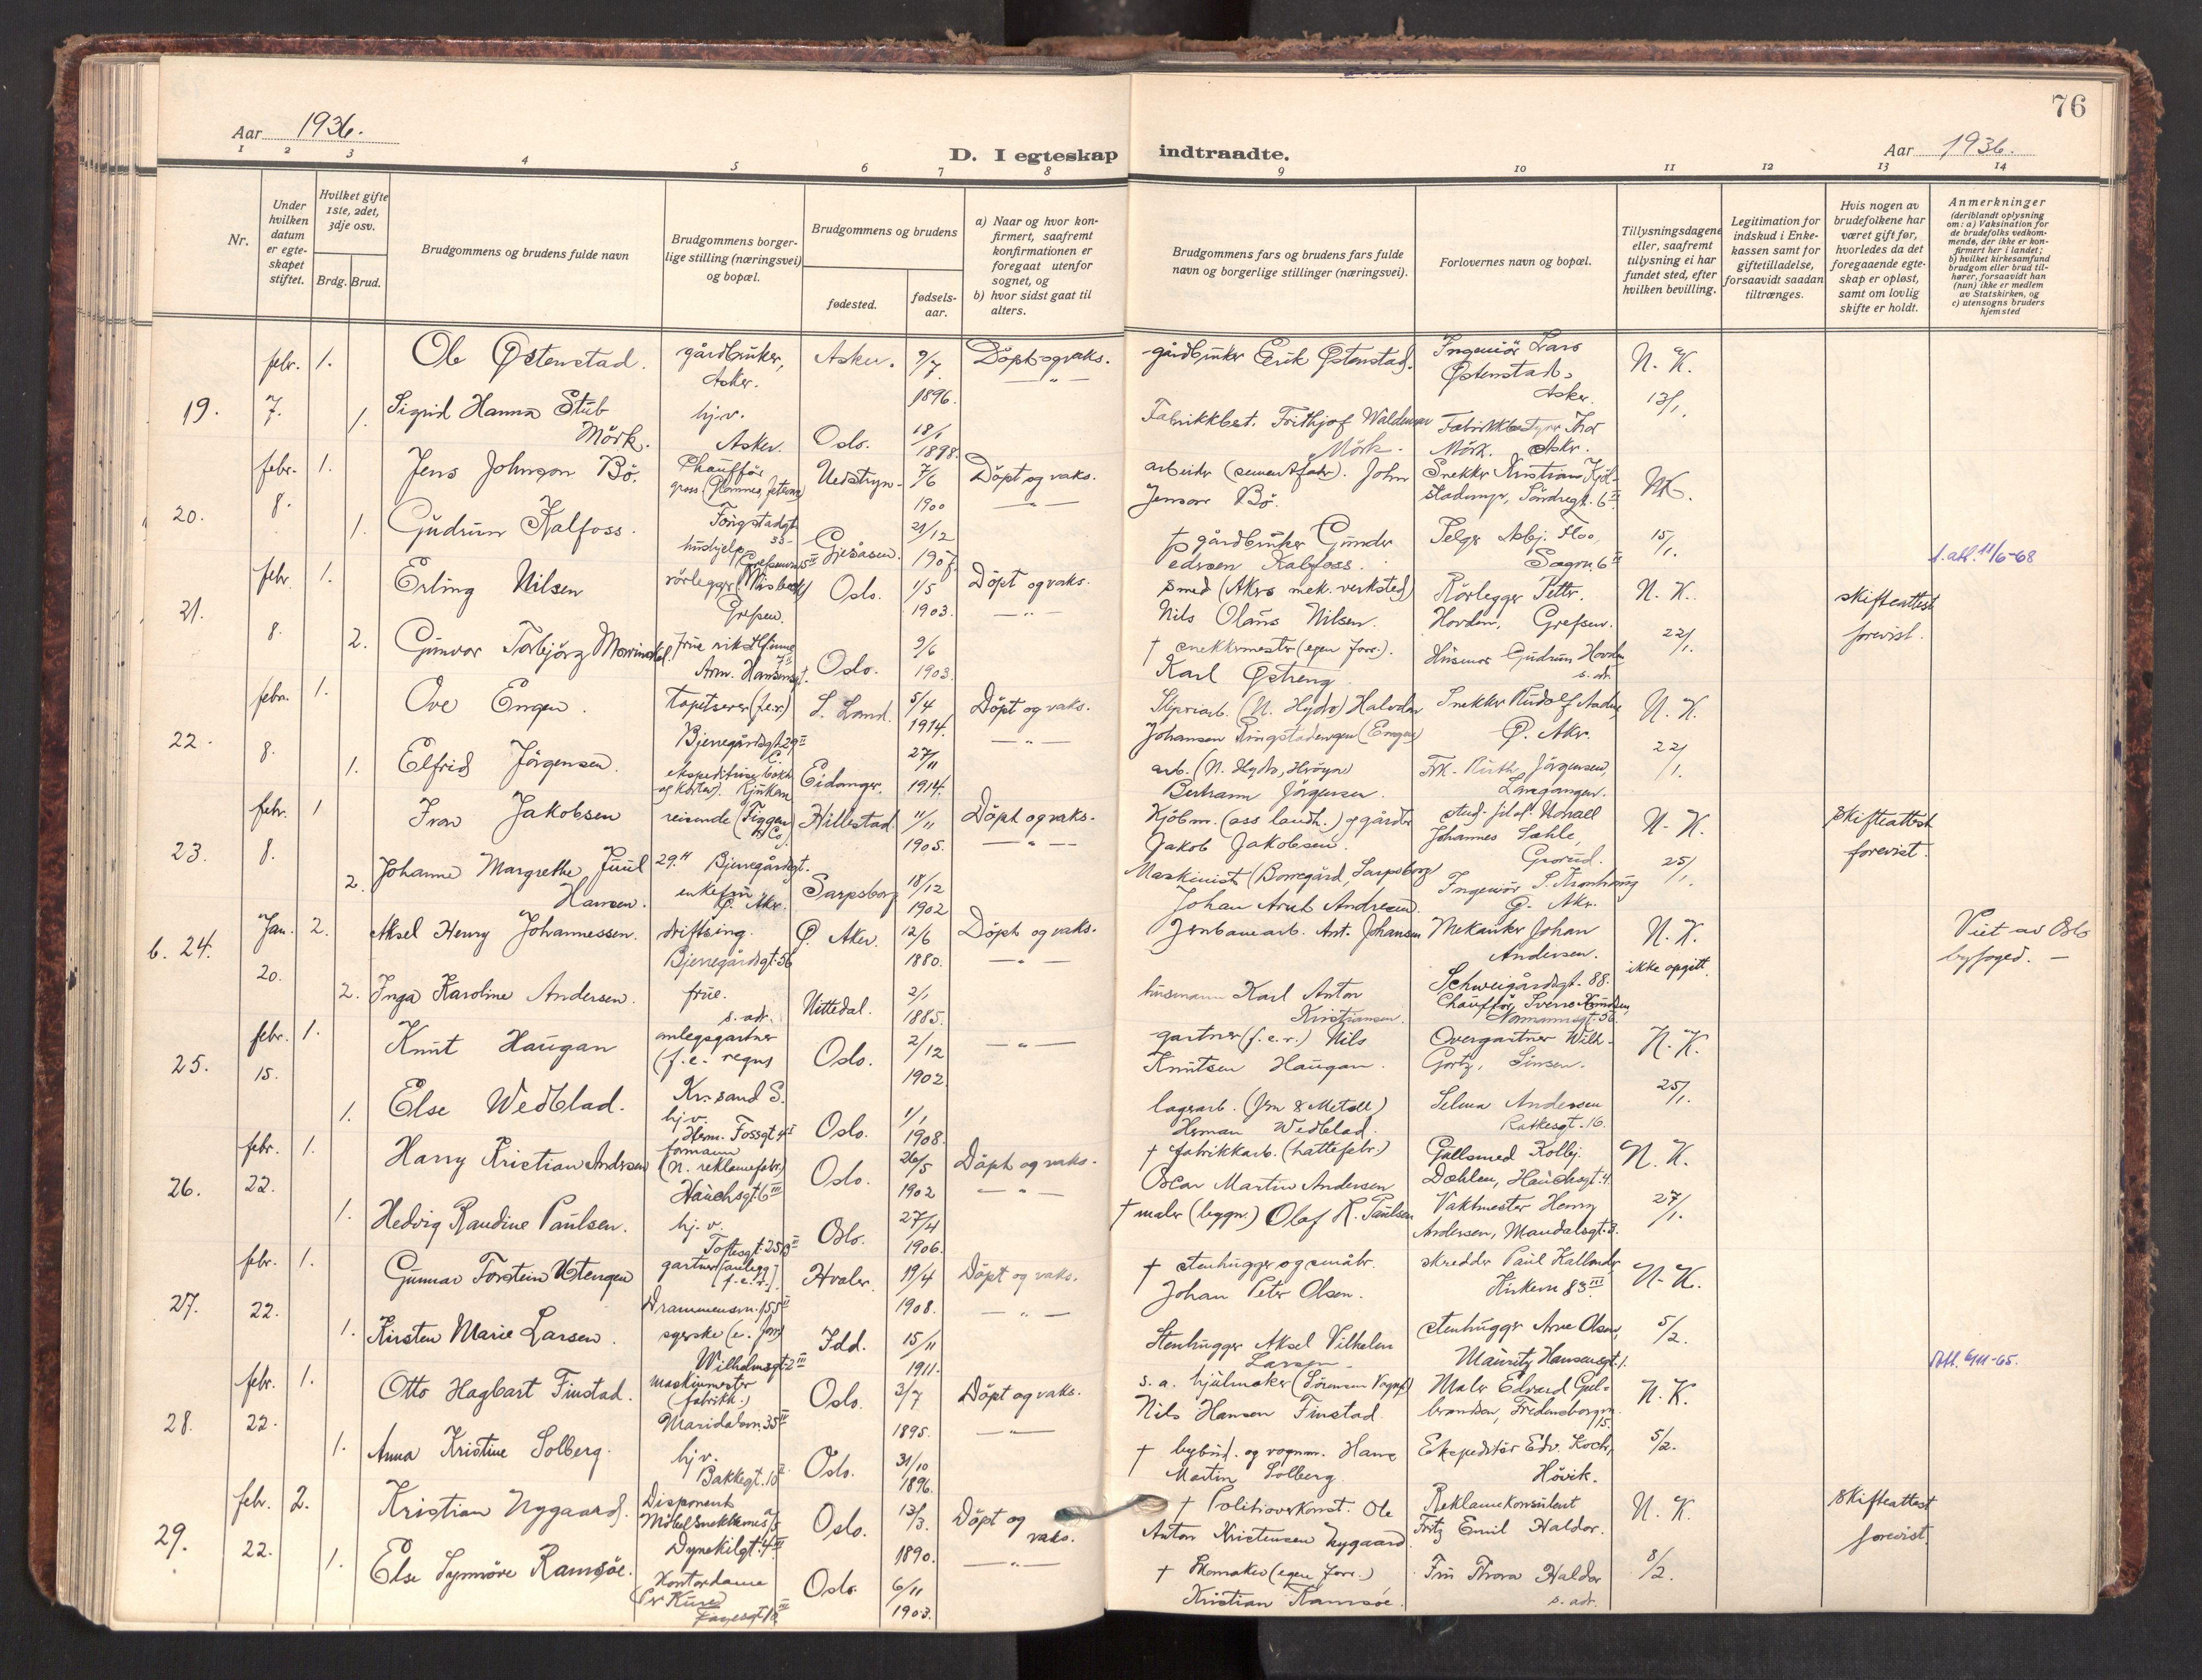 76
Aar 1936.
D. I egteskap indtraadte.
Aar 1936.
1 2 3 4 5 6 7 8 9 10 11 12 13 14
Nr.
Under hvilken datum er egteskapet stiftet.
Hvilket gifte 1ste, 2det, 3dje osv.
Brdg. Brud.
Brudgommens og brudens fulde navn
Brudgommens borgerlige stilling (næringsvei) og bopæl.
Brudgommens og brudens
fødested.
fødselsaar.
a) Naar og hvor konfirmert, saafremt konfirmationen er foregaat utenfor sognet, og
b) hvor sidst gaat til alters.
Brudgommens fars og brudens fars fulde navn og borgerlige stillinger (næringsvei).
Forlovernes navn og bopæl.
Tillysningsdagene eller, saafremt tillysning ei har fundet sted, efter hvilken bevilling.
Legitimation for indskud i Enkekassen samt for giftetilladelse, forsaavidt saadan tiltrænges.
Hvis nogen av brudefolkene har været gift før, hvorledes da det foregaaende egteskap er opløst, samt om lovlig skifte er holdt.
Anmerkninger
(deriblandt oplysning om: a) Vaksination for de brudefolks vedkommende, der ikke er konfirmert her i landet; b) hvilket kirkesamfund brudgom eller brud tilhører, forsaavidt han (hun) ikke er medlem av Statskirken, og c) utensogns bruders hjemsted
19. febr. 7. 1. Ole Østenstad. gårdbruker, Asker. Asker. 9/7 1896. Döpt og vaks. gårdbruker Erik Østenstad. Ingeniör Lars Østenstad, Asker. N. K. 13/1.
1. Sigrid Hanna Stub Mörk. hj.v. Asker. Oslo. 18/1 1898. Fabrikkbest. Frithjof Waldemar Mörk. Fabrikkbestyrer Thor Mörk. Asker.
20. febr. 8. 1. Jens Johnson Bö. Chaufför Nedstryn. 7/6 1900 Döpt og vaks. arbeider John Jenson Bö. Snekker Kristian N.K. 15/1.
1. Gudrun Kalfoss. hushjelp Gjesåsen. 21/12 1907. † gårdbruker Gunder Kalfoss. Selger Asbj. Floo, Sogn. 6 II
s. att. 11/6-68
21. febr. 8. 1. Erling Nilsen rörlegger Grefsen. Oslo. 1/5 1903. Döpt og vaks. smed (Akers mek. verksted) Nils Olaus Nilsen. Rörlegger Petter Hovden, Grefsen. N. K. 22/1. skifteattest forevist.
2. Gunvor Torbjörg frue Arm. Hansensgt. Oslo. 9/6 1903. † snekkermester (egen forr.). Karl Østreng Husmor Gudrun Hovden s. adr.
22. febr. 8. 1. Ove Engen. tapetserer (f.e.r.) Bjerregårdsgt. 29 II S. Land. 5/4 1914. Döpt og vaks. (N. Hydro) Halvdan Johansen (Engen) Snekker Rudolf Ø. Aker. N. K. 22/1.
1. Elfrid Jörgensen. Rjukan Eidanger. 27/11 1914. arb. (N. Hydro, Heröya) Bertram Jörgensen. Frk. Ruth Jörgensen,
23. febr. 8. 1 Ivar Jakobsen reisende 29 II Bjerregårdsgt. Hillestad 11/11 1905. Döpt og vaks. Kjöbm. (ass. landh.) og gårdbr. Jakob Jakobsen. stud. filol. Johannes Sæhle, Grorud. N. K. 25/1. Skifteattest forevist.
2. Johanne Margrethe Juul Hansen. enkefru Ø. Aker. Sarpsborg 18/12 1902 Maskinist (Borregård, Sarpsborg) Johan Andresen. Ingeniör Ø. Aker.
b. 24. Jan. 20. 2. Aksel Henry Johannessen. driftsing. Bjerregårdsgt. 56 Ø. Aker. 12/6 1880. Döpt og vaks. Jernbanearb. Ant. Johansen Mekaniker Johan Andersen. Schweigårdsgt. 88. N. K. ikke opgitt. Viet av Oslo byfoged.
2. Inga Karoline Andersen. frue. s. adr. Nittedal. 2/1 1885. husmann Karl Anton Kristiansen. Chaufför Sverre Knudsen, Normannsgt. 56.
25. febr. 15. 1. Knut Haugan anlegsgartner (f.e. regns Kr.sand S. Oslo. 2/12 1902. gartner (f.e.r.) Nils Knutsen Haugan. Overgartner Wilh. Gortz, Sinsen. N. K. 25/1.
1. Else Wedblad. hj.v. Herm. Fossgt. 4 Oslo. 1/1 1908. lagerarb. (Jern & Metall) Herman Wedblad. Selma Andersen Ratkesgt. 16.
26. febr. 22. 1. Harry Kristian Andersen formann (N. reklamefabr.) Hauchsgt. 6 III Oslo. 26/5 1902 Döpt og vaks. † fabrikkarb. (hattefabr.) Oscar Martin Andersen Gullsmed Kolbj. Dæhlen, Hauchsgt. 4. N. K. 27/1.
1. Hedvig Randine Paulsen. hj.v. Toftesgt. 25 Oslo. 27/4 1906. † maler (bygn.) Olaf K. Paulsen Vaktmester Henry Andersen, Mandalsgt. 3.
27. febr. 22. 1. Gunnar Torstein Utengen gartner [anlegg f.e.r.] Drammensvn. 155 II Hvaler. 19/4 1908. Döpt og vaks. † stenhugger og småbr. Johan Peter Olsen. skredder Paul Kallander, Kirkevn 83 III N. K. 5/2.
1. Kirsten Marie Larsen. syerske (e. forr) Wilhelmsgt. 2 III Idd. 15/11 1911. Stenhugger Aksel Vilhelm Larsen. stenhugger Arne Olsen, Mauritz Hansensgt. 1.
Att. 6/11-65.
28. febr. 22. 1. Otto Hagbart Finstad. maskinmester (fabrikk.) Maridalsvn. 35 IV Oslo. 3/7 1895. Döpt og vaks. s. a. hjulmaker (Sörensen Vognf.) Nils Hansen Finstad. Maler Edvard Gulbrandsen, Fredensborgvn. 15. N. K. 5/2.
1. Anna Kristine Solberg. hj.v. Bakkegt. 10 II Oslo. 31/10 1896. † bybud. og vognm. Hans Martin Solberg. Ekspeditör Edv. Koch, Hövik.
29. febr. 22. 2. Kristian Nygaard. Disponent Möbelsnekkernes a/s Dynekilgt. 4 III Oslo. 13/3. 1890. Döpt og vaks. † Politioverkonst. Ole Anton Kristensen Nygaard. Reklamekonsulent Fritz Emil Haldor. N. K. 8/2. Skifteattest forevist.
1. Else Synnöve Ramsöe. Kontordame Oslo 6/11 1903. † Skomaker (egen forr.) Kristian Ramsöe. Fru Thora Haldor s. adr.